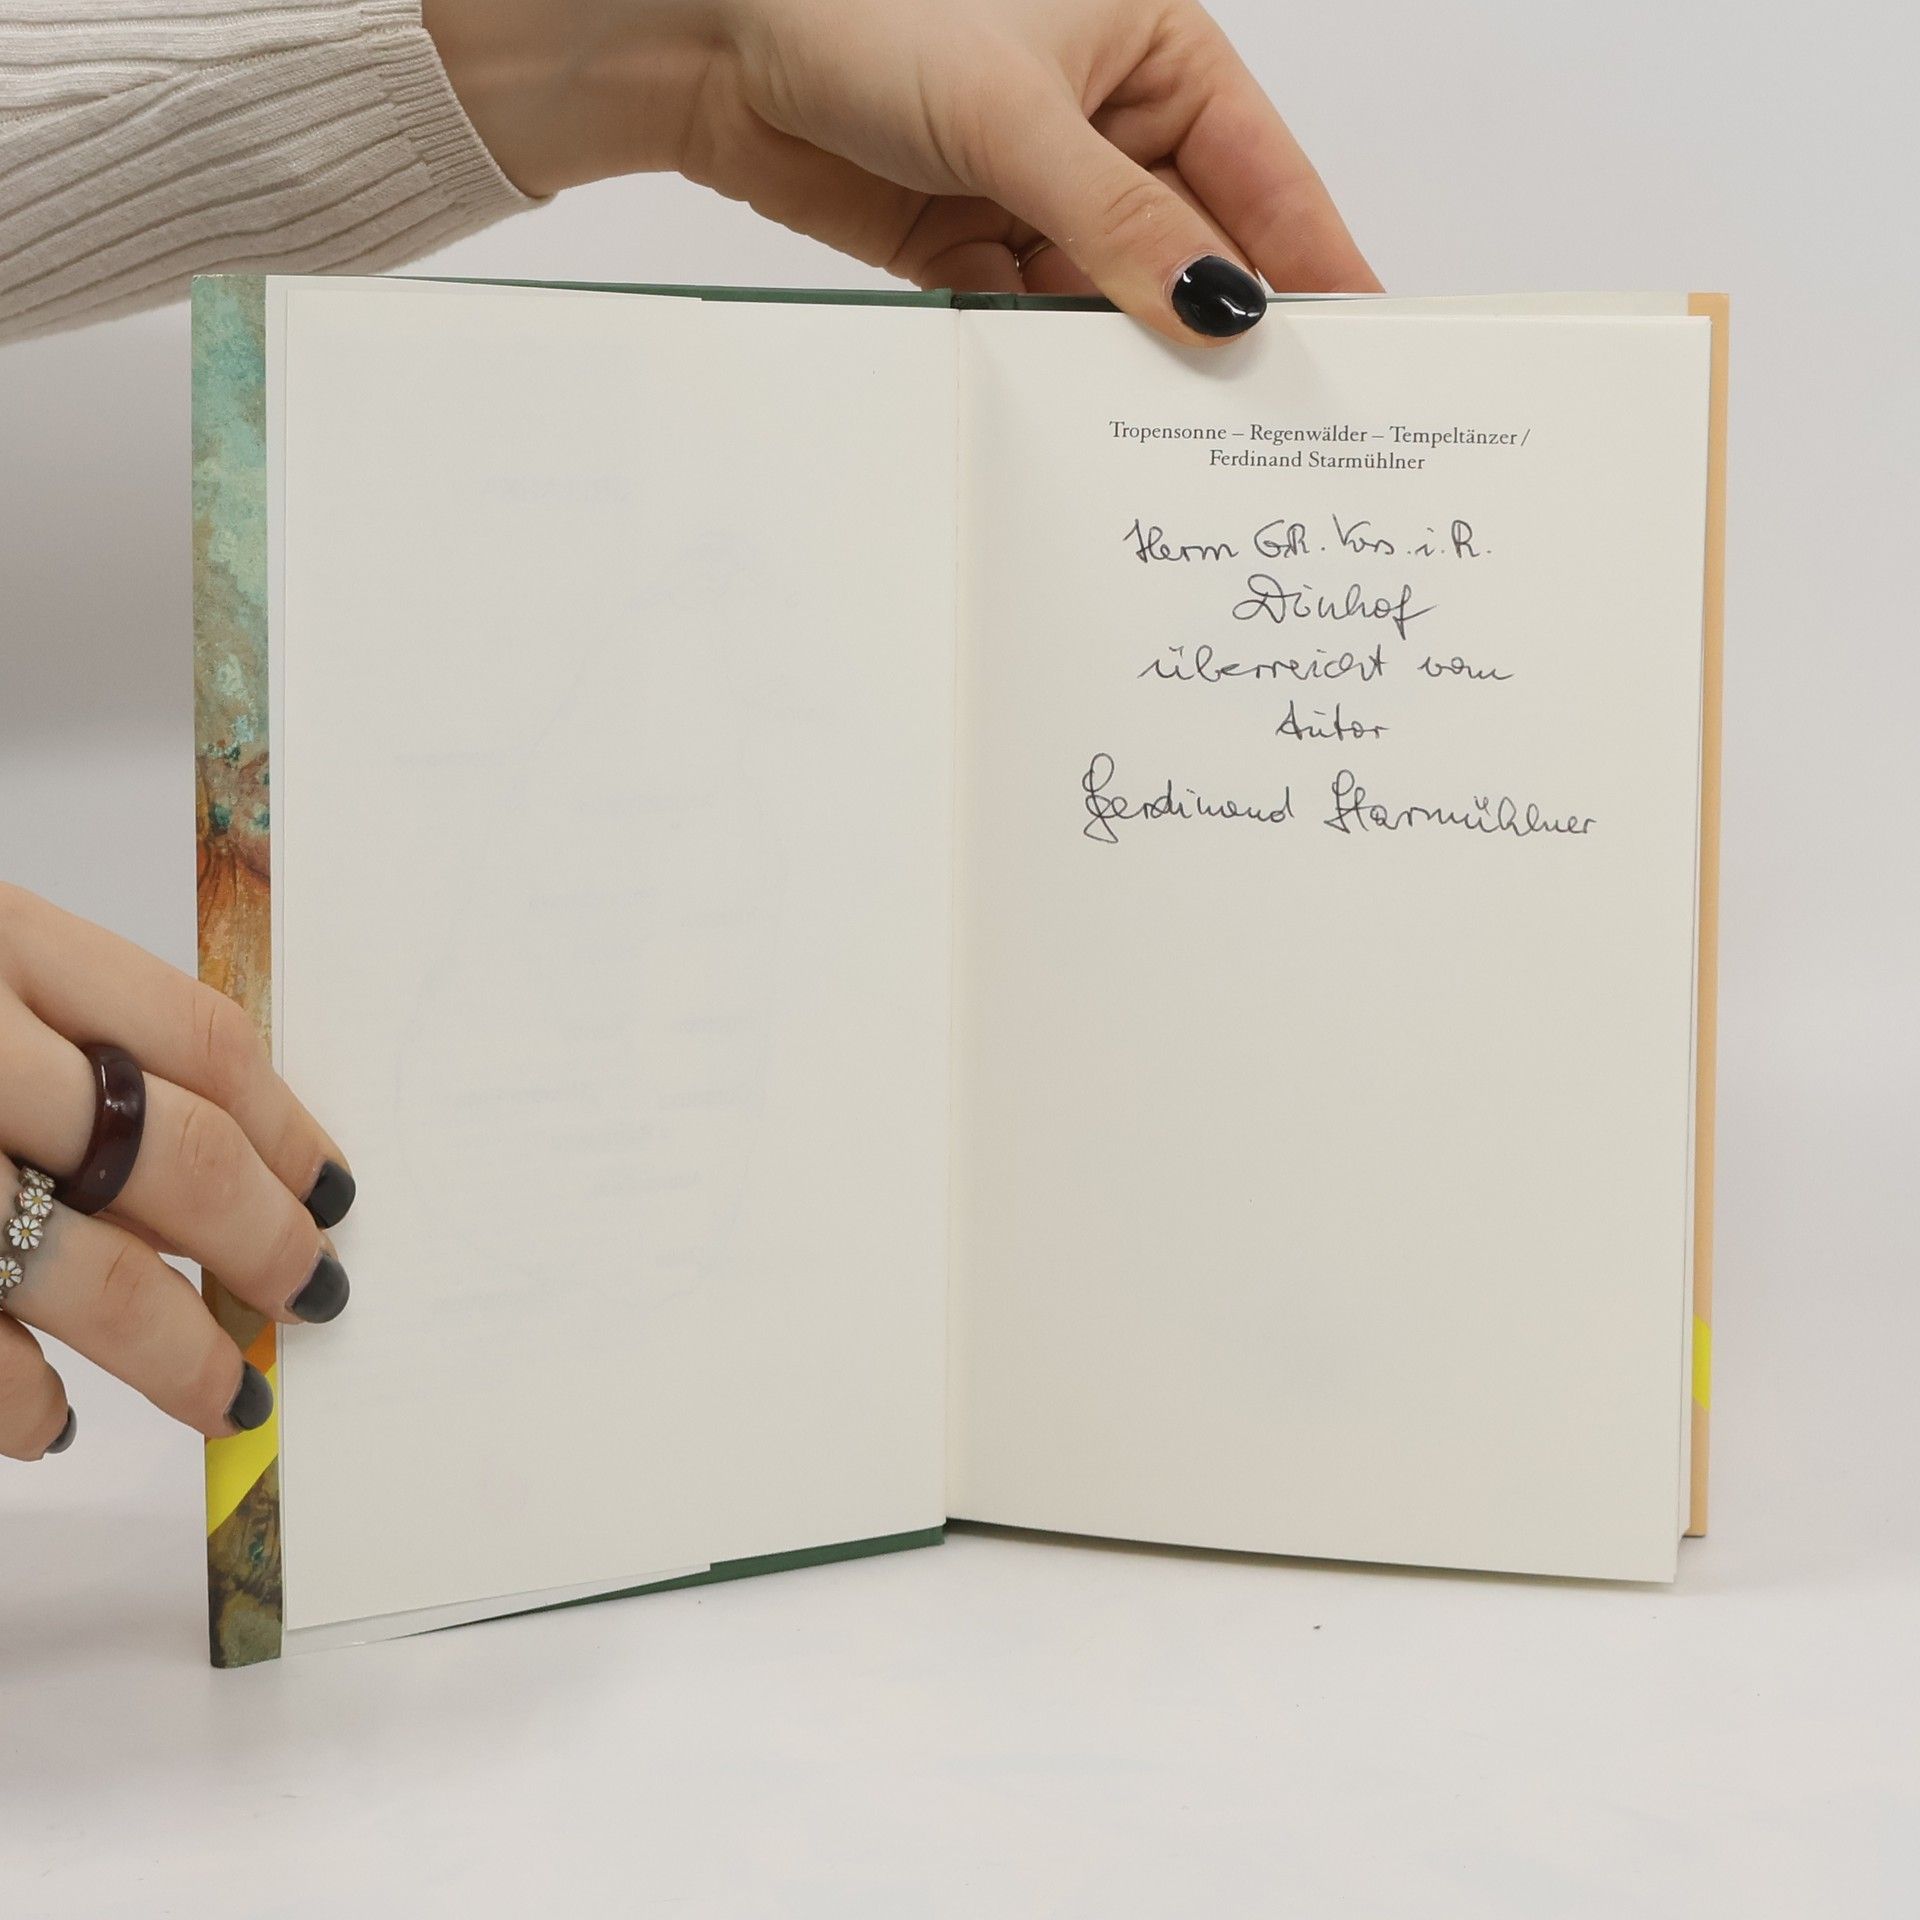 Tropensonne – Regenwälder – Tempeltänzer /
Ferdinand Starmühlner
Herrn GR. Vors. i. R.
Dinhof
überreicht vom
Autor
Ferdinand Starmühlner